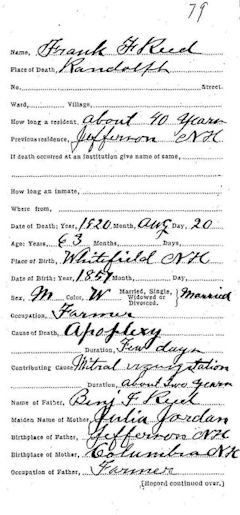 79
Name, Frank F Reed
Place of Death, Randolph
No. Street.
Ward, Village,
How long a resident, about 40 Years
Previous residence, Jefferson NH
If death occurred at an institution give name of same,
How long an inmate,
Where from,
Date of Death: Year, 1920 Month, Aug Day, 20
Age: Years, 63 Months, Days,
Place of Birth, Whitefield NH
Date of Birth: Year, 1857 Month, Day,
Sex, M Color, W Married, Single, Widowed or Divorced. } Married
Occupation, Farmer
Cause of Death, Apoplexy
Duration, Few days
Contributing Cause, Mitral regurgitation
Duration, about two years
Name of Father, Benj F Reed
Maiden Name of Mother, Julia Jordan
Birthplace of Father, Jefferson NH
Birthplace of Mother, Columbia NH
Occupation of Father, Farmer
(Record continued over.)